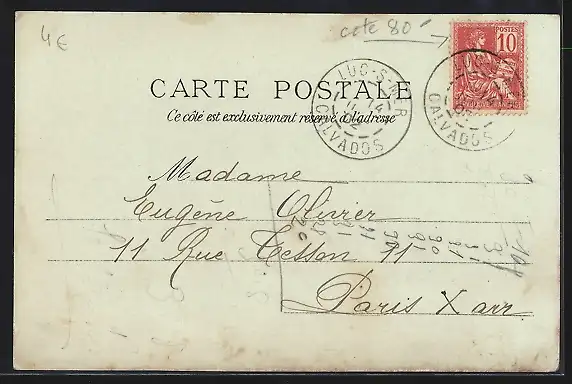 4€
cote 80
POSTES
10
LUC-S-MER
CALVADOS
CALVADOS
CARTE POSTALE
Ce côté est exclusivement réservé à l'adresse
Madame
Eugène Olivier
11 Rue Tesson 11
Paris X arr